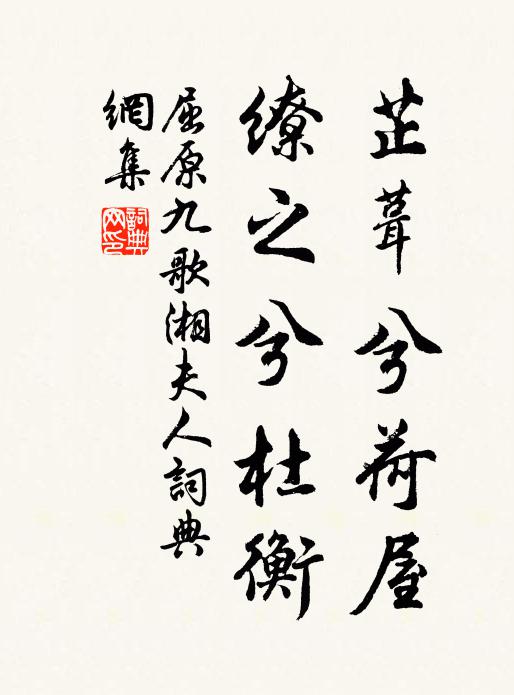 芷葺兮荷屋
繚之兮杜衡
屈原九歌湘夫人詞典
網集
詞典网印